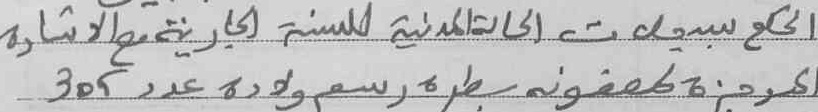 الحكم بسجلات الحالة المدنية للسنة الجارية مع الاشارة
الموجزة لمضمونه بطرة رسم ولادة عدد 305